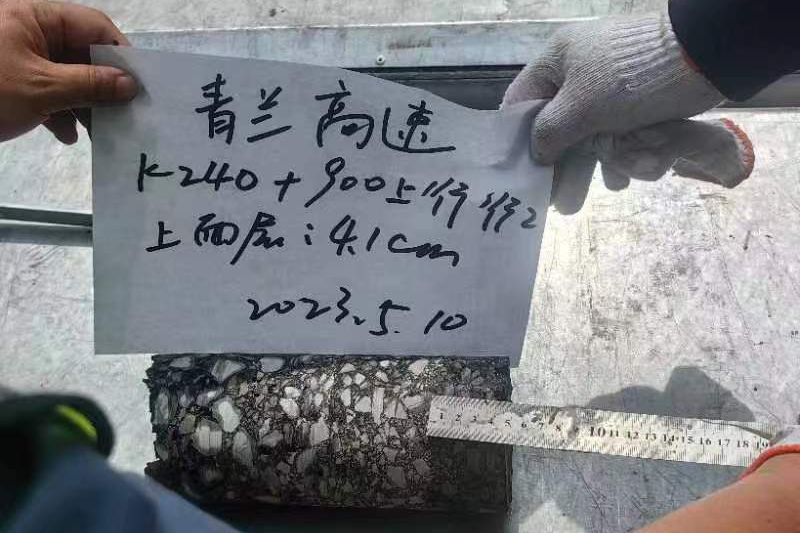 青兰高速
K240+900上行行2
上面层:4.1cm
2023.5.10
1 2 3 4 5 6 7 8 9 10 11 12 13 14 15 16 17 18 19